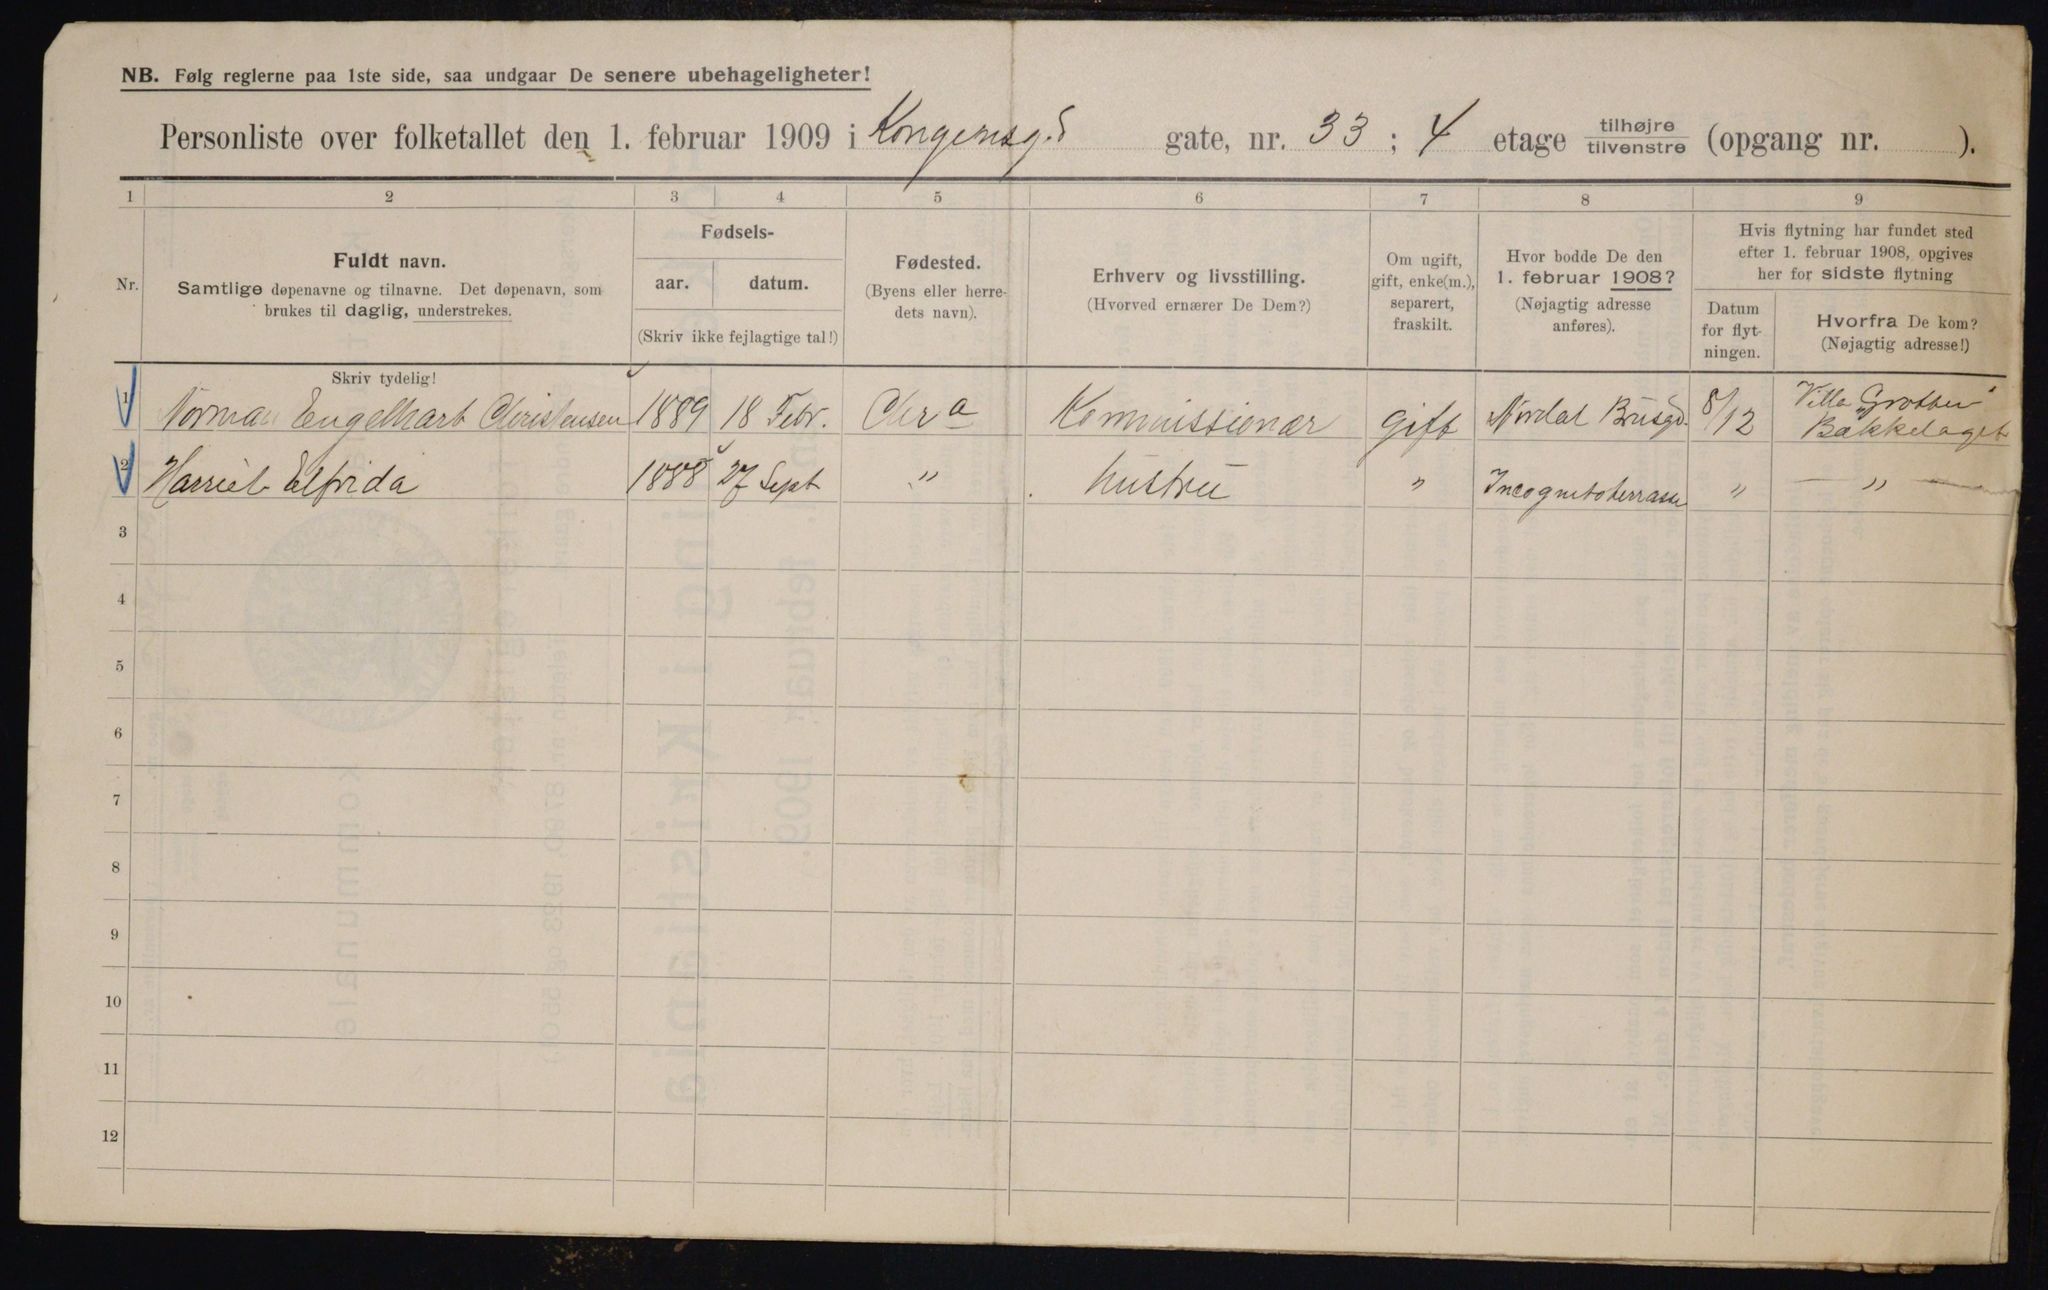 NB. Følg reglerne paa 1ste side, saa undgaar De senere ubehageligheter!
Personliste over folketallet den 1. februar 1909 i Kongensgd gate, nr. 33 ; 4 etage tilhøjre / tilvenstre (opgang nr. ).
1 2 3 4 5 6 7 8 9
Nr.
Fuldt navn.
Samtlige døpenavne og tilnavne. Det døpenavn, som
brukes til daglig, understrekes.
Skriv tydelig!
Fødsels-
aar. datum.
(Skriv ikke fejlagtige tal!)
Fødested.
(Byens eller herre-
dets navn).
Erhverv og livsstilling.
(Hvorved ernærer De Dem?)
Om ugift,
gift, enke(m.),
separert,
fraskilt.
Hvor bodde De den
1. februar 1908?
(Nøjagtig adresse
anføres).
Hvis flytning har fundet sted
efter 1. februar 1908, opgives
her for sidste flytning
Datum
for flyt-
ningen.
Hvorfra De kom?
(Nøjagtig adresse!)
1 Norman Engelhart Christensen 1889 18 Febr. Chr a Kommissionær gift Nordal Brunsgd. 8/12 Villa "Grotten" Bækkelaget
2 Harriet Elfrida 1888 27 Sept " Hustru " Incognitoterrasse " — " —
3
4
5
6
7
8
9
10
11
12